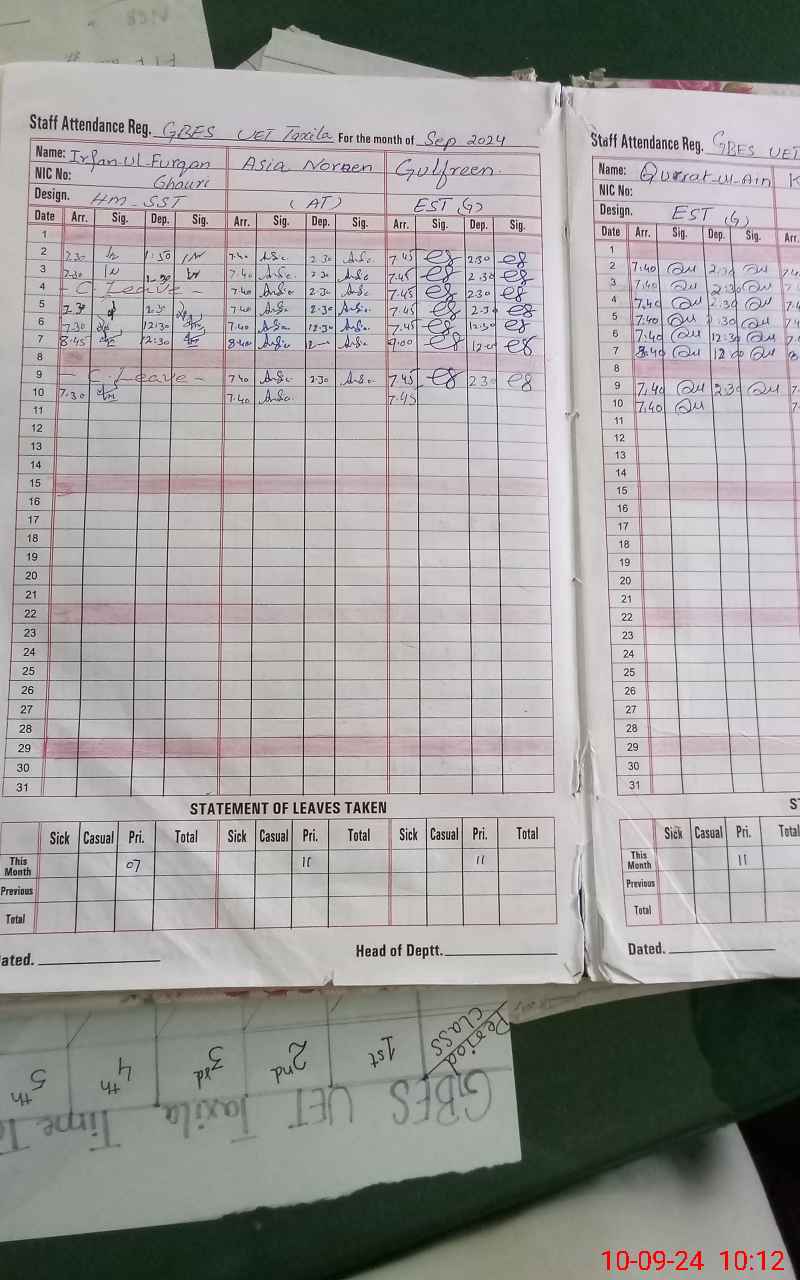 Staff Attendance Reg. GBES UET Taxila For the month of Sep 2024
Name: Irfan-ul-Furqan Ghauri Asia Noreen Gulfreen
NIC No:
Design. HM-SST (AT) EST (G)
Date Arr. Sig. Dep. Sig. Arr. Sig. Dep. Sig. Arr. Sig. Dep. Sig.
1
2 7.30 1:50 7.40 2.30 7.45 2:30
3 7.30 7.40 2.30 7.45 2.30
4 - C. Leave - 7.40 2.30 7.45 2.30
5 7.30 2.30 7.40 2.30 7.45 2.30
6 7.30 12:30 7.40 12.30 7.45 12:30
7 8.45 12:30 8.40 12 9.00 12:0
8
9 - C. Leave - 7.40 2.30 7.45 2.30
10 7.30 7.40 7.45
11
12
13
14
15
16
17
18
19
20
21
22
23
24
25
26
27
28
29
30
31
STATEMENT OF LEAVES TAKEN
Sick Casual Pri. Total Sick Casual Pri. Total Sick Casual Pri. Total
This Month 07 11 11
Previous
Total
Dated. Head of Deptt.
Staff Attendance Reg. GBES UET
Name: Qurrat-ul-Ain
NIC No:
Design. EST (G)
Date Arr. Sig. Dep. Sig. Arr.
1
2 7.40 2.30
3 7.40 2:30
4 7.40 2.30
5 7.40 2.30
6 7.40 12:30
7 8.40 12:00
8
9 7.40 2.30
10 7.40
11
12
13
14
15
16
17
18
19
20
21
22
23
24
25
26
27
28
29
30
31
Sick Casual Pri. Total
This Month 11
Previous
Total
Dated.
Period
Class
1st 2nd 3rd 4th 5th
GBES UET Taxila Time
10-09-24 10:12